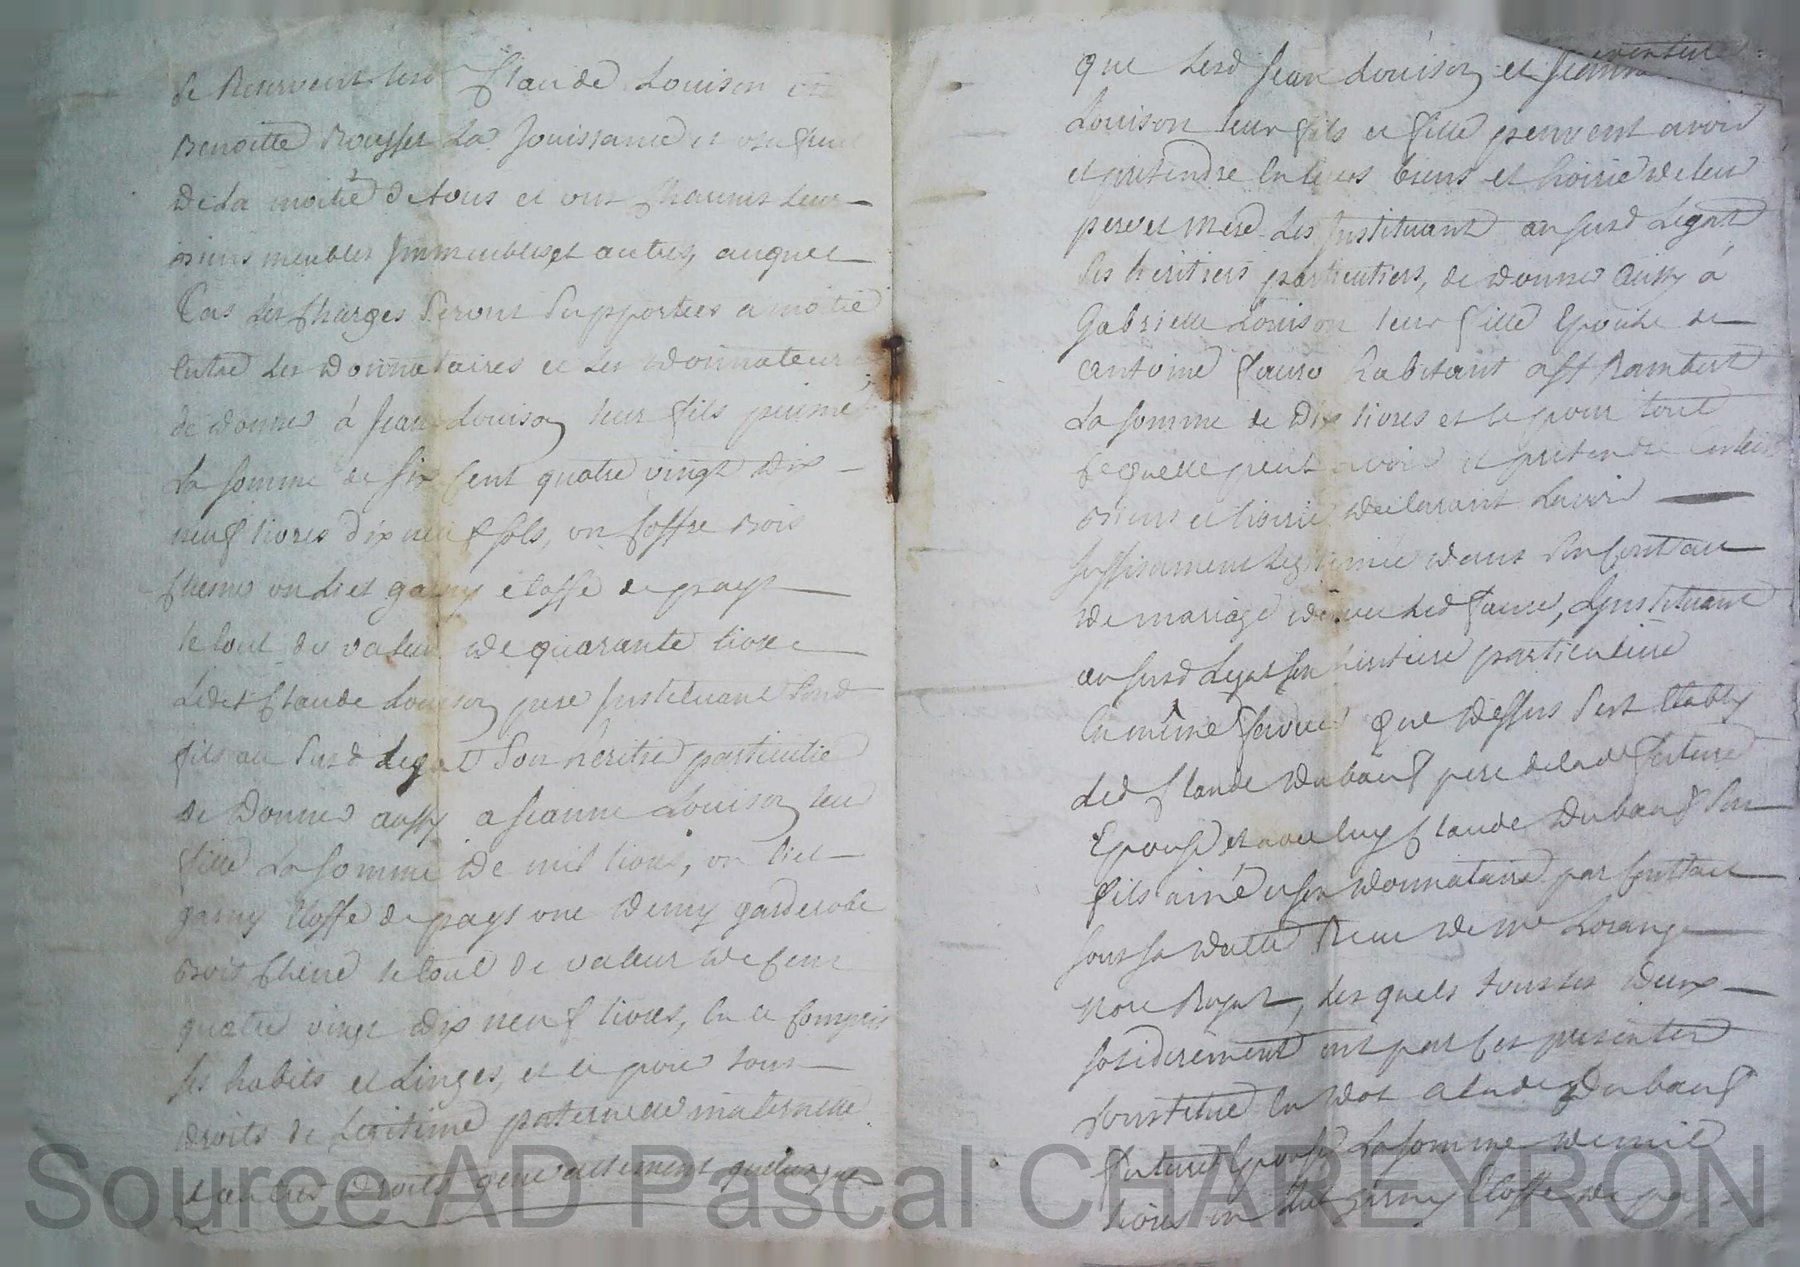 se Reservent lesd Claude Louison et
Benoitte Rousset La Jouissance et usufruit
de La moitié de tous et uns chacuns leurs
biens meubles Immeubles, et autres, auquel
Cas les charges seront supportées a moitié
entre les donnataires et les donnateurs
de donner à Jean Louison leur fils puisné
La somme de six cent quatre vingt dix
neuf livres dix neuf sols, un coffre bois
chesne un lit garny etoffe de pays
le tout de valeur de quarante livres
Ledit Claude Louison pere Instituant sond
fils au susd Legat son heritier particulie
de donner aussy a Jeanne Louison leur
fille La somme de mil livres, un lict
garny etoffe de pays une demy garderobe
bois chene le tout de valeur de cent
quatre vingt dix neuf livres, en ce compris
ses habits et Linges, et ce pour tous
droits de Legitime paternelle maternelle
et autres droits generallement quelconque
que Lesd Jean Louison et Jeanne
Louison leur fils et fille peuvent avoir
et pretendre en leurs biens et hoirie de leur
pere et mere Les Instituant au susd Legat
ses heritiers particuliers, de donner aussy à
Gabrielle Louison leur fille Epouse de
antoine faure habitant a St Rambert
La somme de dix livres et ce pour tout
ce quelle peut avoir et pretendre en leurs
biens et hoirie declarant Lavoir
suffisament Legitimée dans son contract
de mariage avec led faure, Linstituant
au susd Legat son heritiere particuliere
En même faveur que dessus s'est Etably
Led Claude Duboeuf pere de lade future
Epouse et avec luy Claude Duboeuf son
fils ainé et son donnataire par contract
sous sa datte Receu de me Lorange
nore Royal, les quels tous les deux
solidairement ont par ces presentes
constitué en dot a lade Duboeuf
future Epouse La somme de mil
livres un lict garny etoffe de pays
Source AD Pascal CHAREYRON